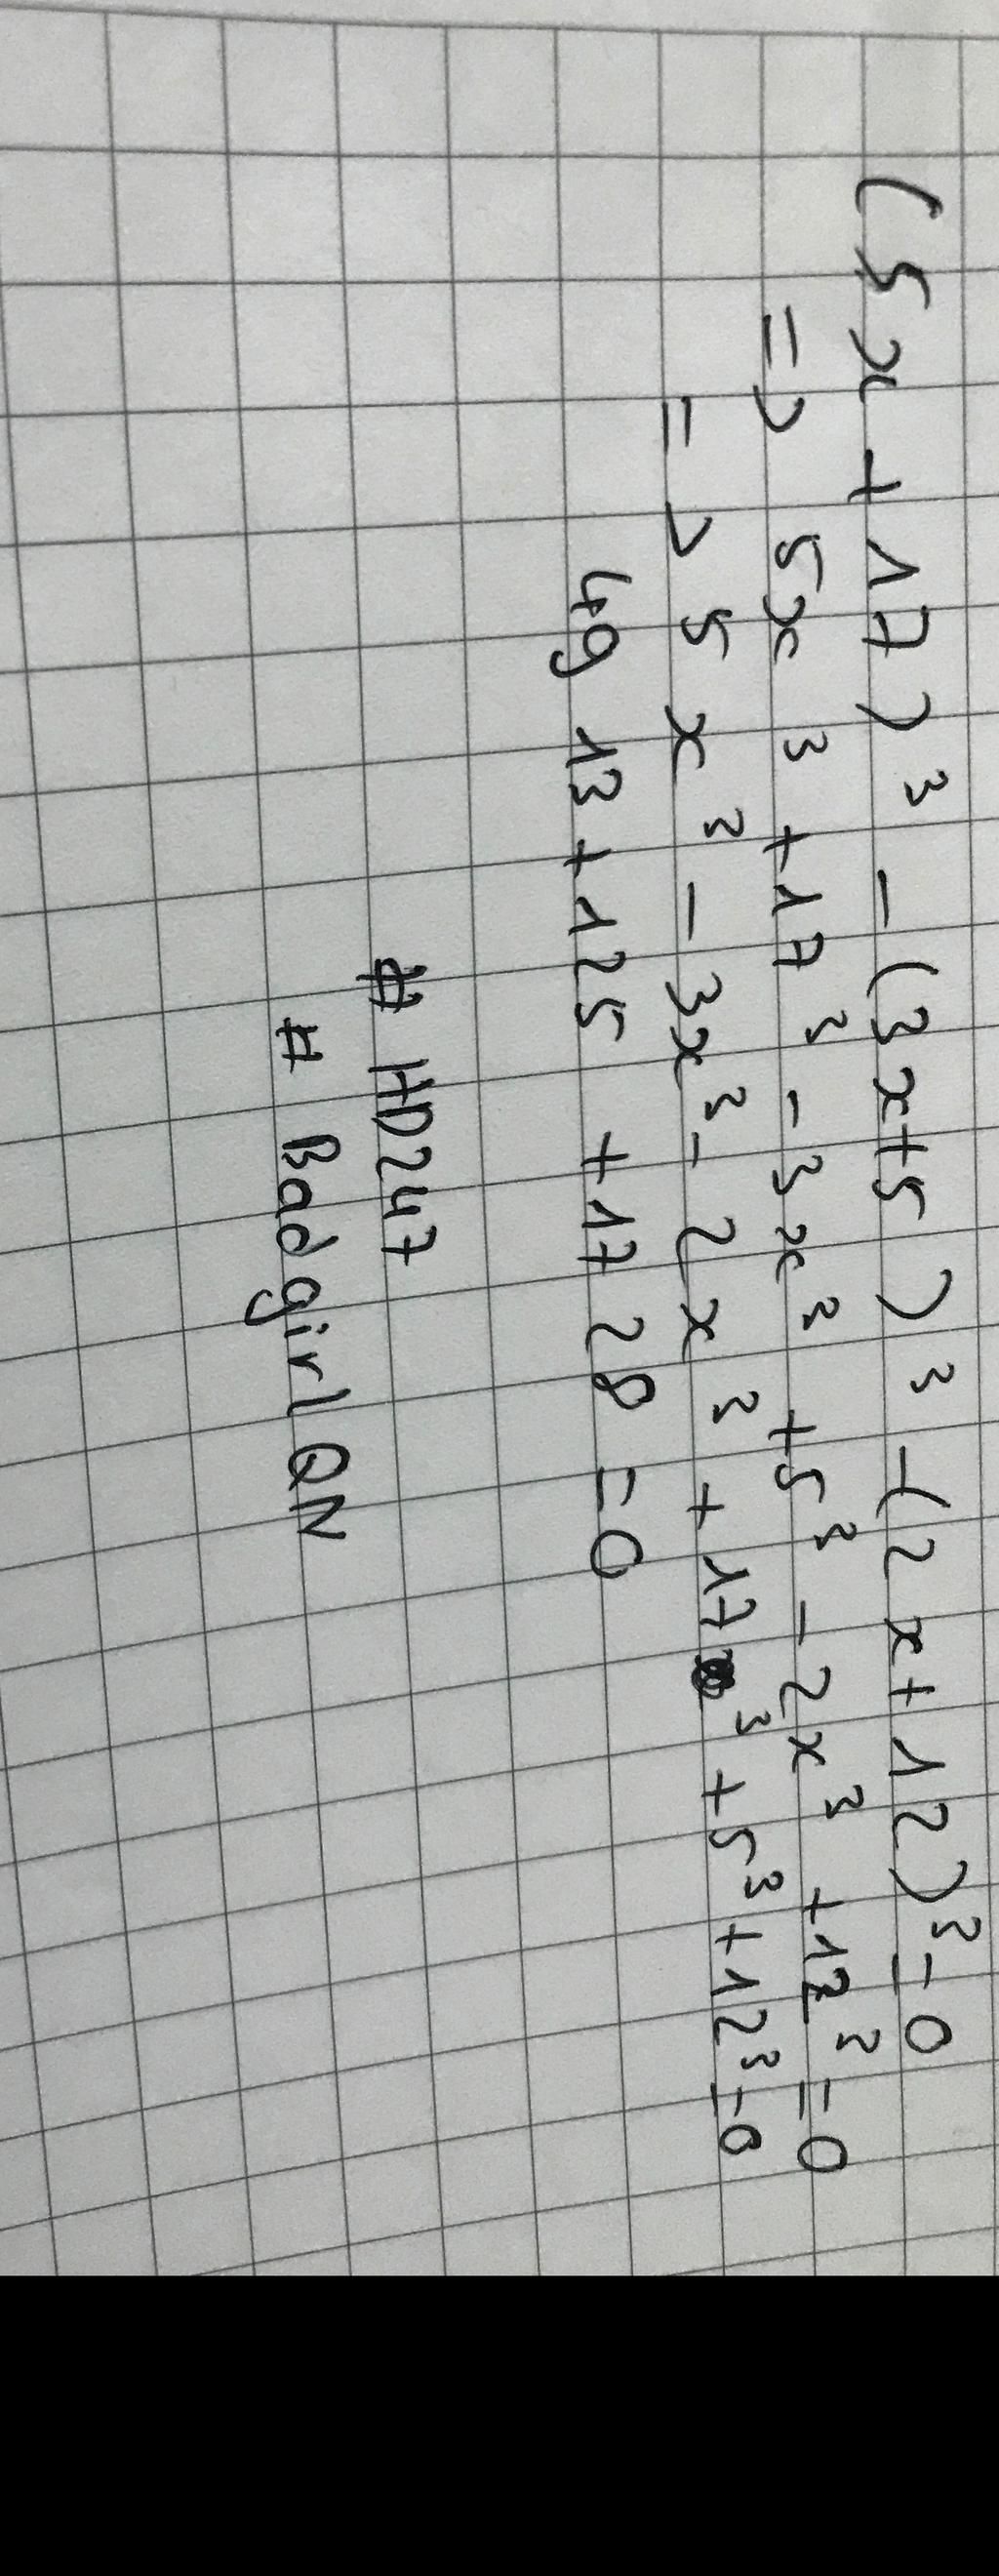 (5x + 17)³ - (3x+5)³ - (2x+12)³ = 0
=> 5x³ + 17³ - 3x³ + 5³ - 2x³ + 12³ = 0
=> 5x³ - 3x³ - 2x³ + 17³ + 5³ + 12³ = 0
4913 + 125 + 1728 = 0
# HD247
# BadgirlQN